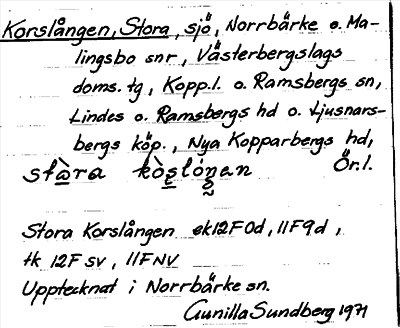 Korslången, Stora, sjö, Norrbärke o. Ma-
lingsbo snr, Västerbergslags
doms. tg, Kopp.l. o. Ramsbergs sn,
Lindes o. Ramsbergs hd o. Ljusnars-
bergs köp., Nya Kopparbergs hd,
stàra kòslóŋen Ör.l.
Stora Korslången ek 12F0d, 11F9d,
tk 12F SV, 11F NV
Upptecknat i Norrbärke sn.
Gunilla Sundberg 1971